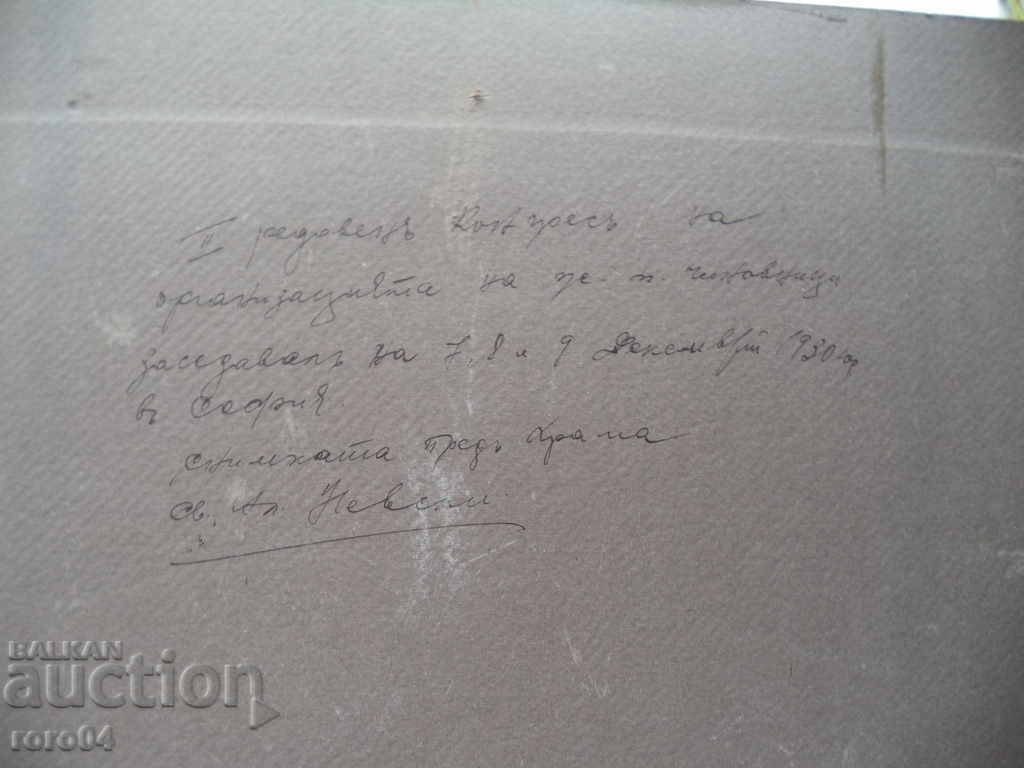 II редовенъ Конгресъ на
организацията на ж. п. чиновници
заседавалъ на 7, 8 и 9 Декемврий 1930 год
въ София.
снимката предъ Храма
Св. Ал. Невски.
BALKAN
auction
roro04